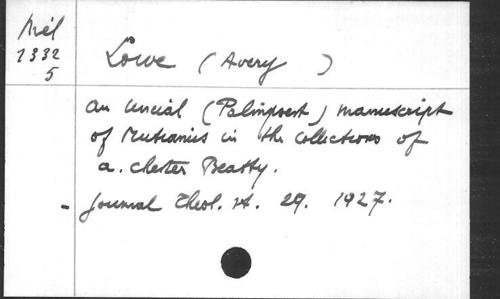 Mél
1332
5
Lowe (Avery )
an uncial (Palimpsest) manuscript
of Mutianus in the collections of
a. Chester Beatty.
- Journal Theol. st. 29. 1927.